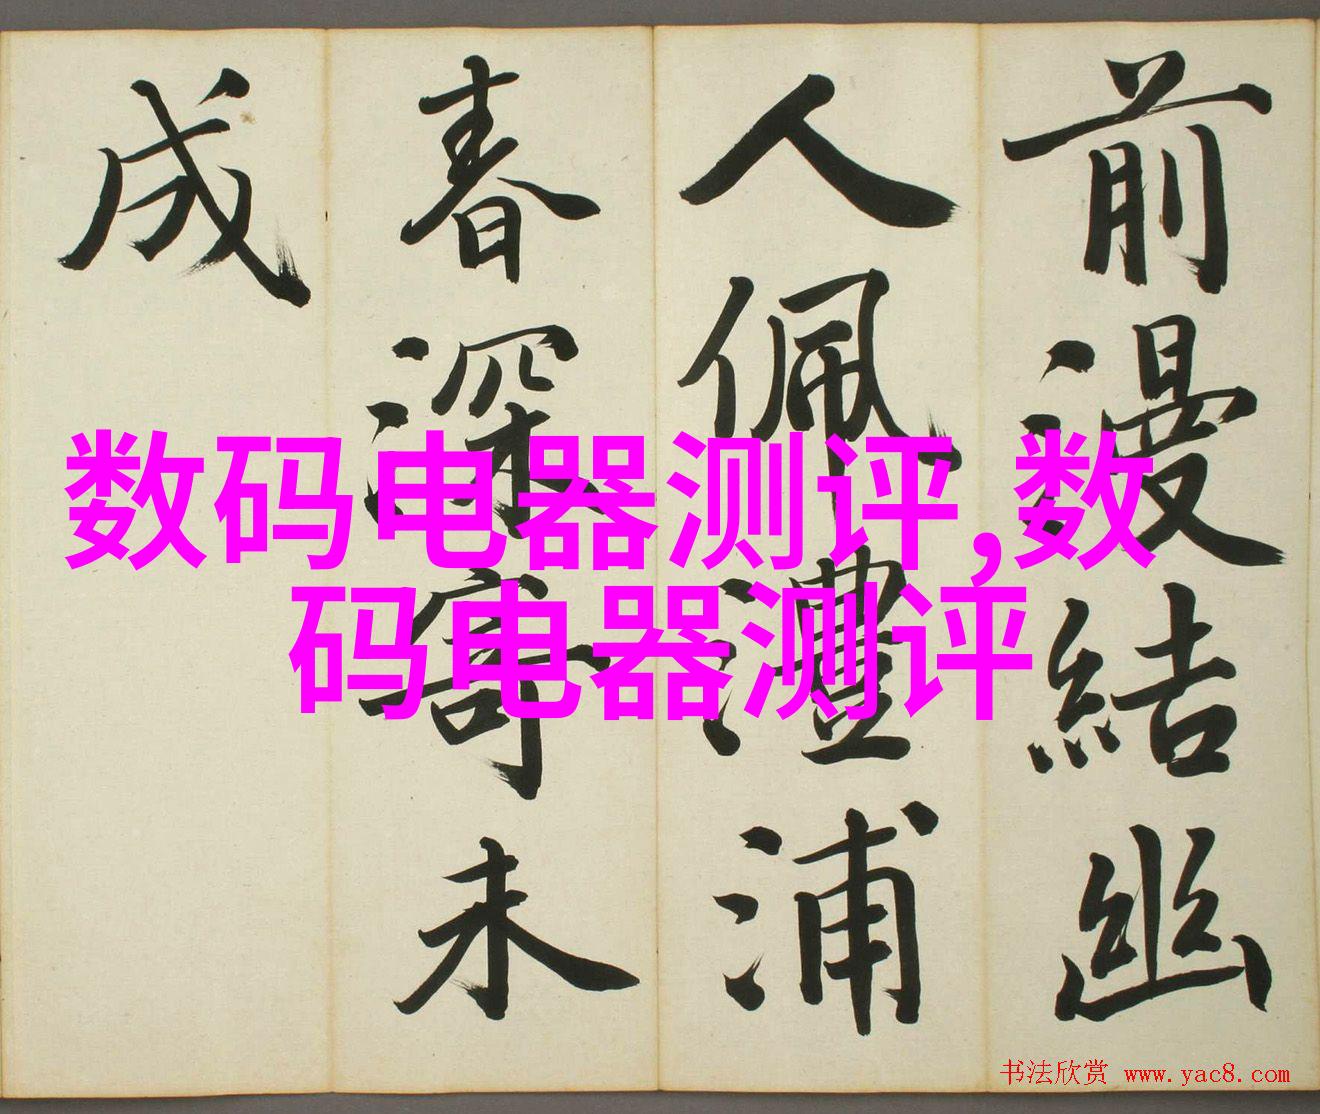 前漫結幽
人佩澧浦
春深寄未
成
数码电器测评,数
码电器测评
书法欣赏 www.yac8.com